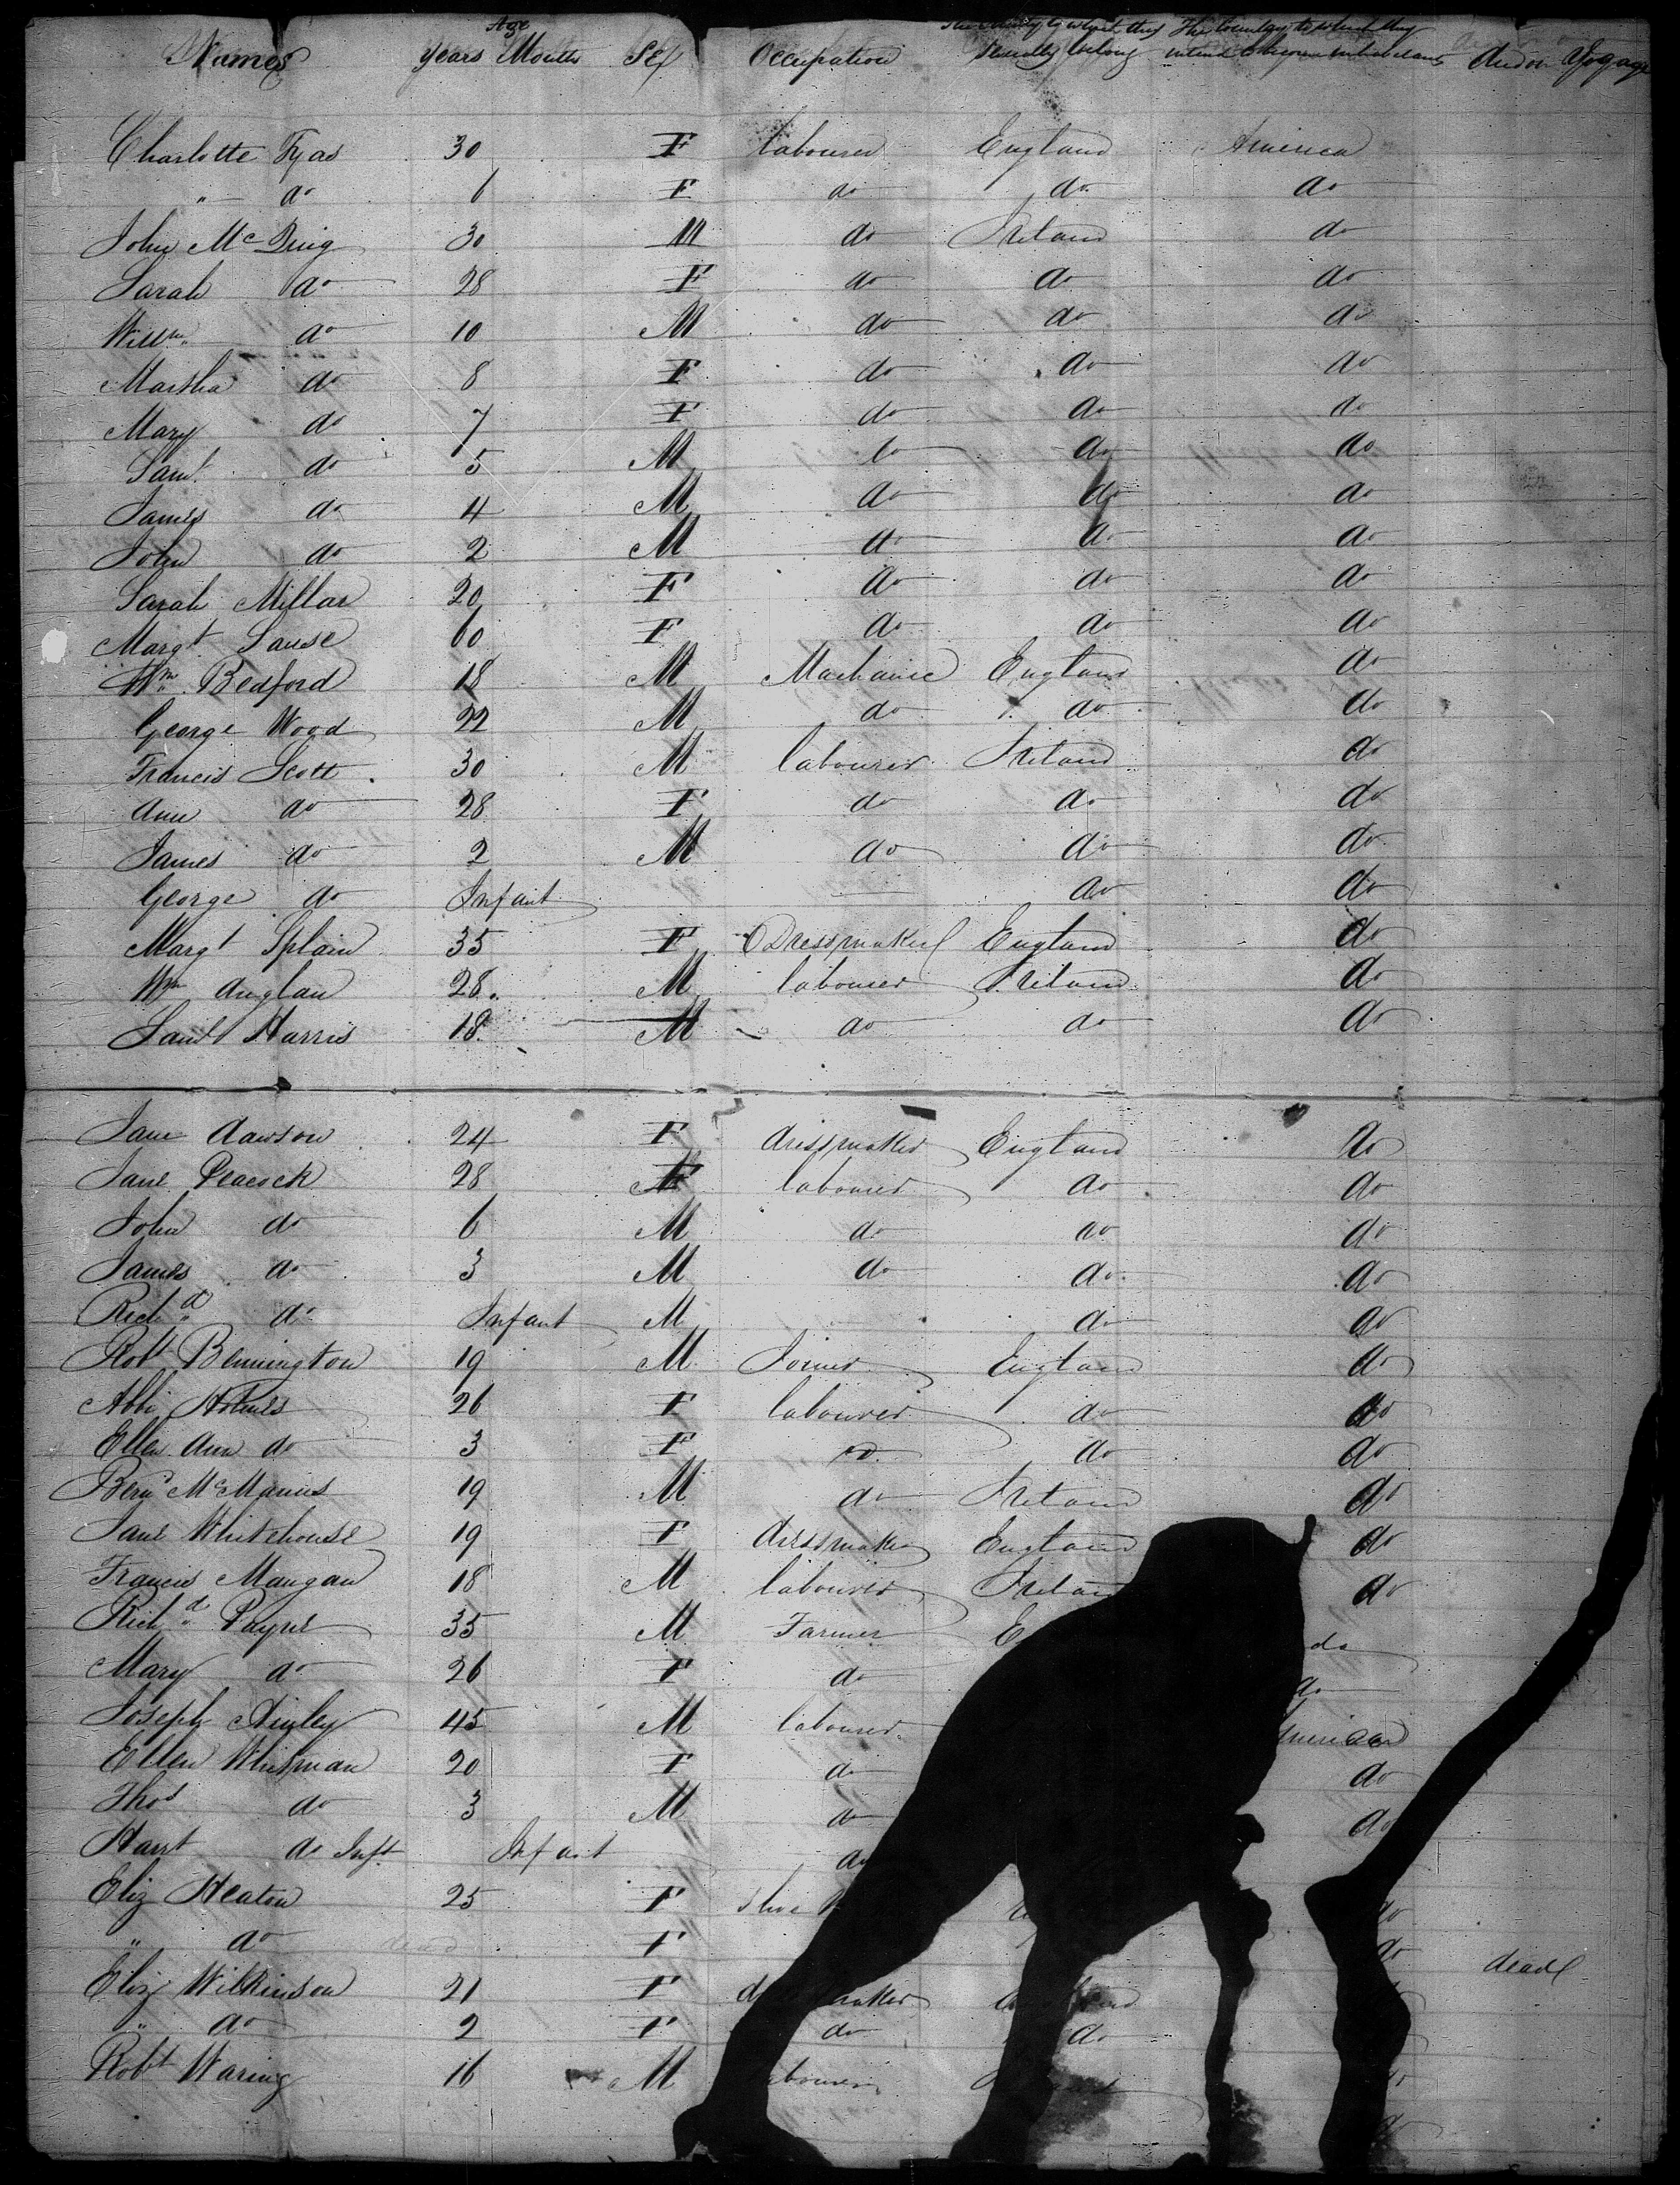 Age
Names Years Months Sex Occupation The Country to which they The Country to which they Died on Voyage
severally belong intend to become inhabitants
Charlotte Tyas 30 F labourer England America
" do 6 F do do do
John Mc 30 M do Ireland do
Sarah do 28 F do do do
Willm do 10 M do do do
Martha do 8 F do do do
Mary do 7 F do do do
Saml do 5 M do do do
James do 4 M do do do
John do 2 M do do do
Sarah Millar 20 F do do do
Margt 60 F do do do
Wm Bedford 18 M Mechanic England do
George Wood 22 M do do do
Francis Scott 30 M labourer Ireland do
Ann do 28 F do do do
James do 2 M do do do
George do Infant do do
Margt Splain 35 F Dressmaker England do
Wm Anglan 28 M labourer Ireland do
Saml Harris 18 M do do do
Jane Dawson 24 F dressmaker England do
Jane Peacock 28 F labourer do do
John do 6 M do do do
James do 3 M do do do
Richd do Infant M do do
Robt Bennington 19 M Joiner England do
Abbi Holmes 26 F labourer do do
Ellen Ann do 3 F do do do
Bernd McManus 19 M do Ireland do
Jane Whitehouse 19 F dressmaker England do
Francis Mangan 18 M labourer Ireland do
Richd Payne 35 M Farmer E do
Mary do 26 F do do
Joseph 45 M labourer American
Ellen Whitman 20 F do do
Thos do 3 M do do
Hant do Inft Infant do
Eliz Heaton 25 F Shoe do
" do dead F do dead
Eliz Wilkinson 21 F dressmaker
" do 2 F do do
Robt Waring 16 M labourer
do